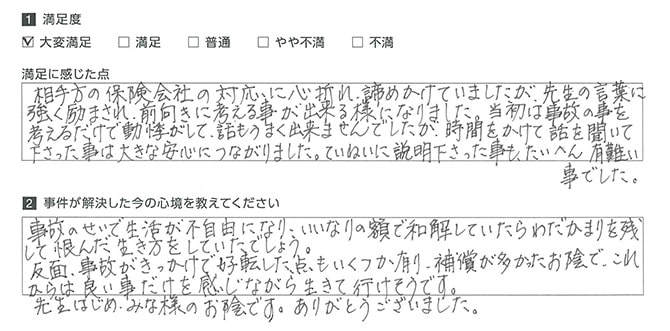 1 満足度
☑ 大変満足 □ 満足 □ 普通 □ やや不満 □ 不満
満足に感じた点
相手方の保険会社の対応に心折れ、諦めかけていましたが、先生の言葉に
強く励まされ、前向きに考える事が出来る様になりました。当初は事故の事を
考えるだけで動悸がして、話もうまく出来ませんでしたが、時間をかけて話を聞いて
下さった事は大きな安心につながりました。ていねいに説明下さった事も、たいへん有難い
事でした。
2 事件が解決した今の心境を教えてください
事故のせいで生活が不自由になり、いいなりの額で和解していたらわだかまりを残
して恨んだ生き方をしていたでしょう。
反面、事故がきっかけで好転した点もいくつか有り、補償が多かったお陰で、これ
からは良い事だけを感じながら生きて行けそうです。
先生はじめ、みな様のお陰です。ありがとうございました。